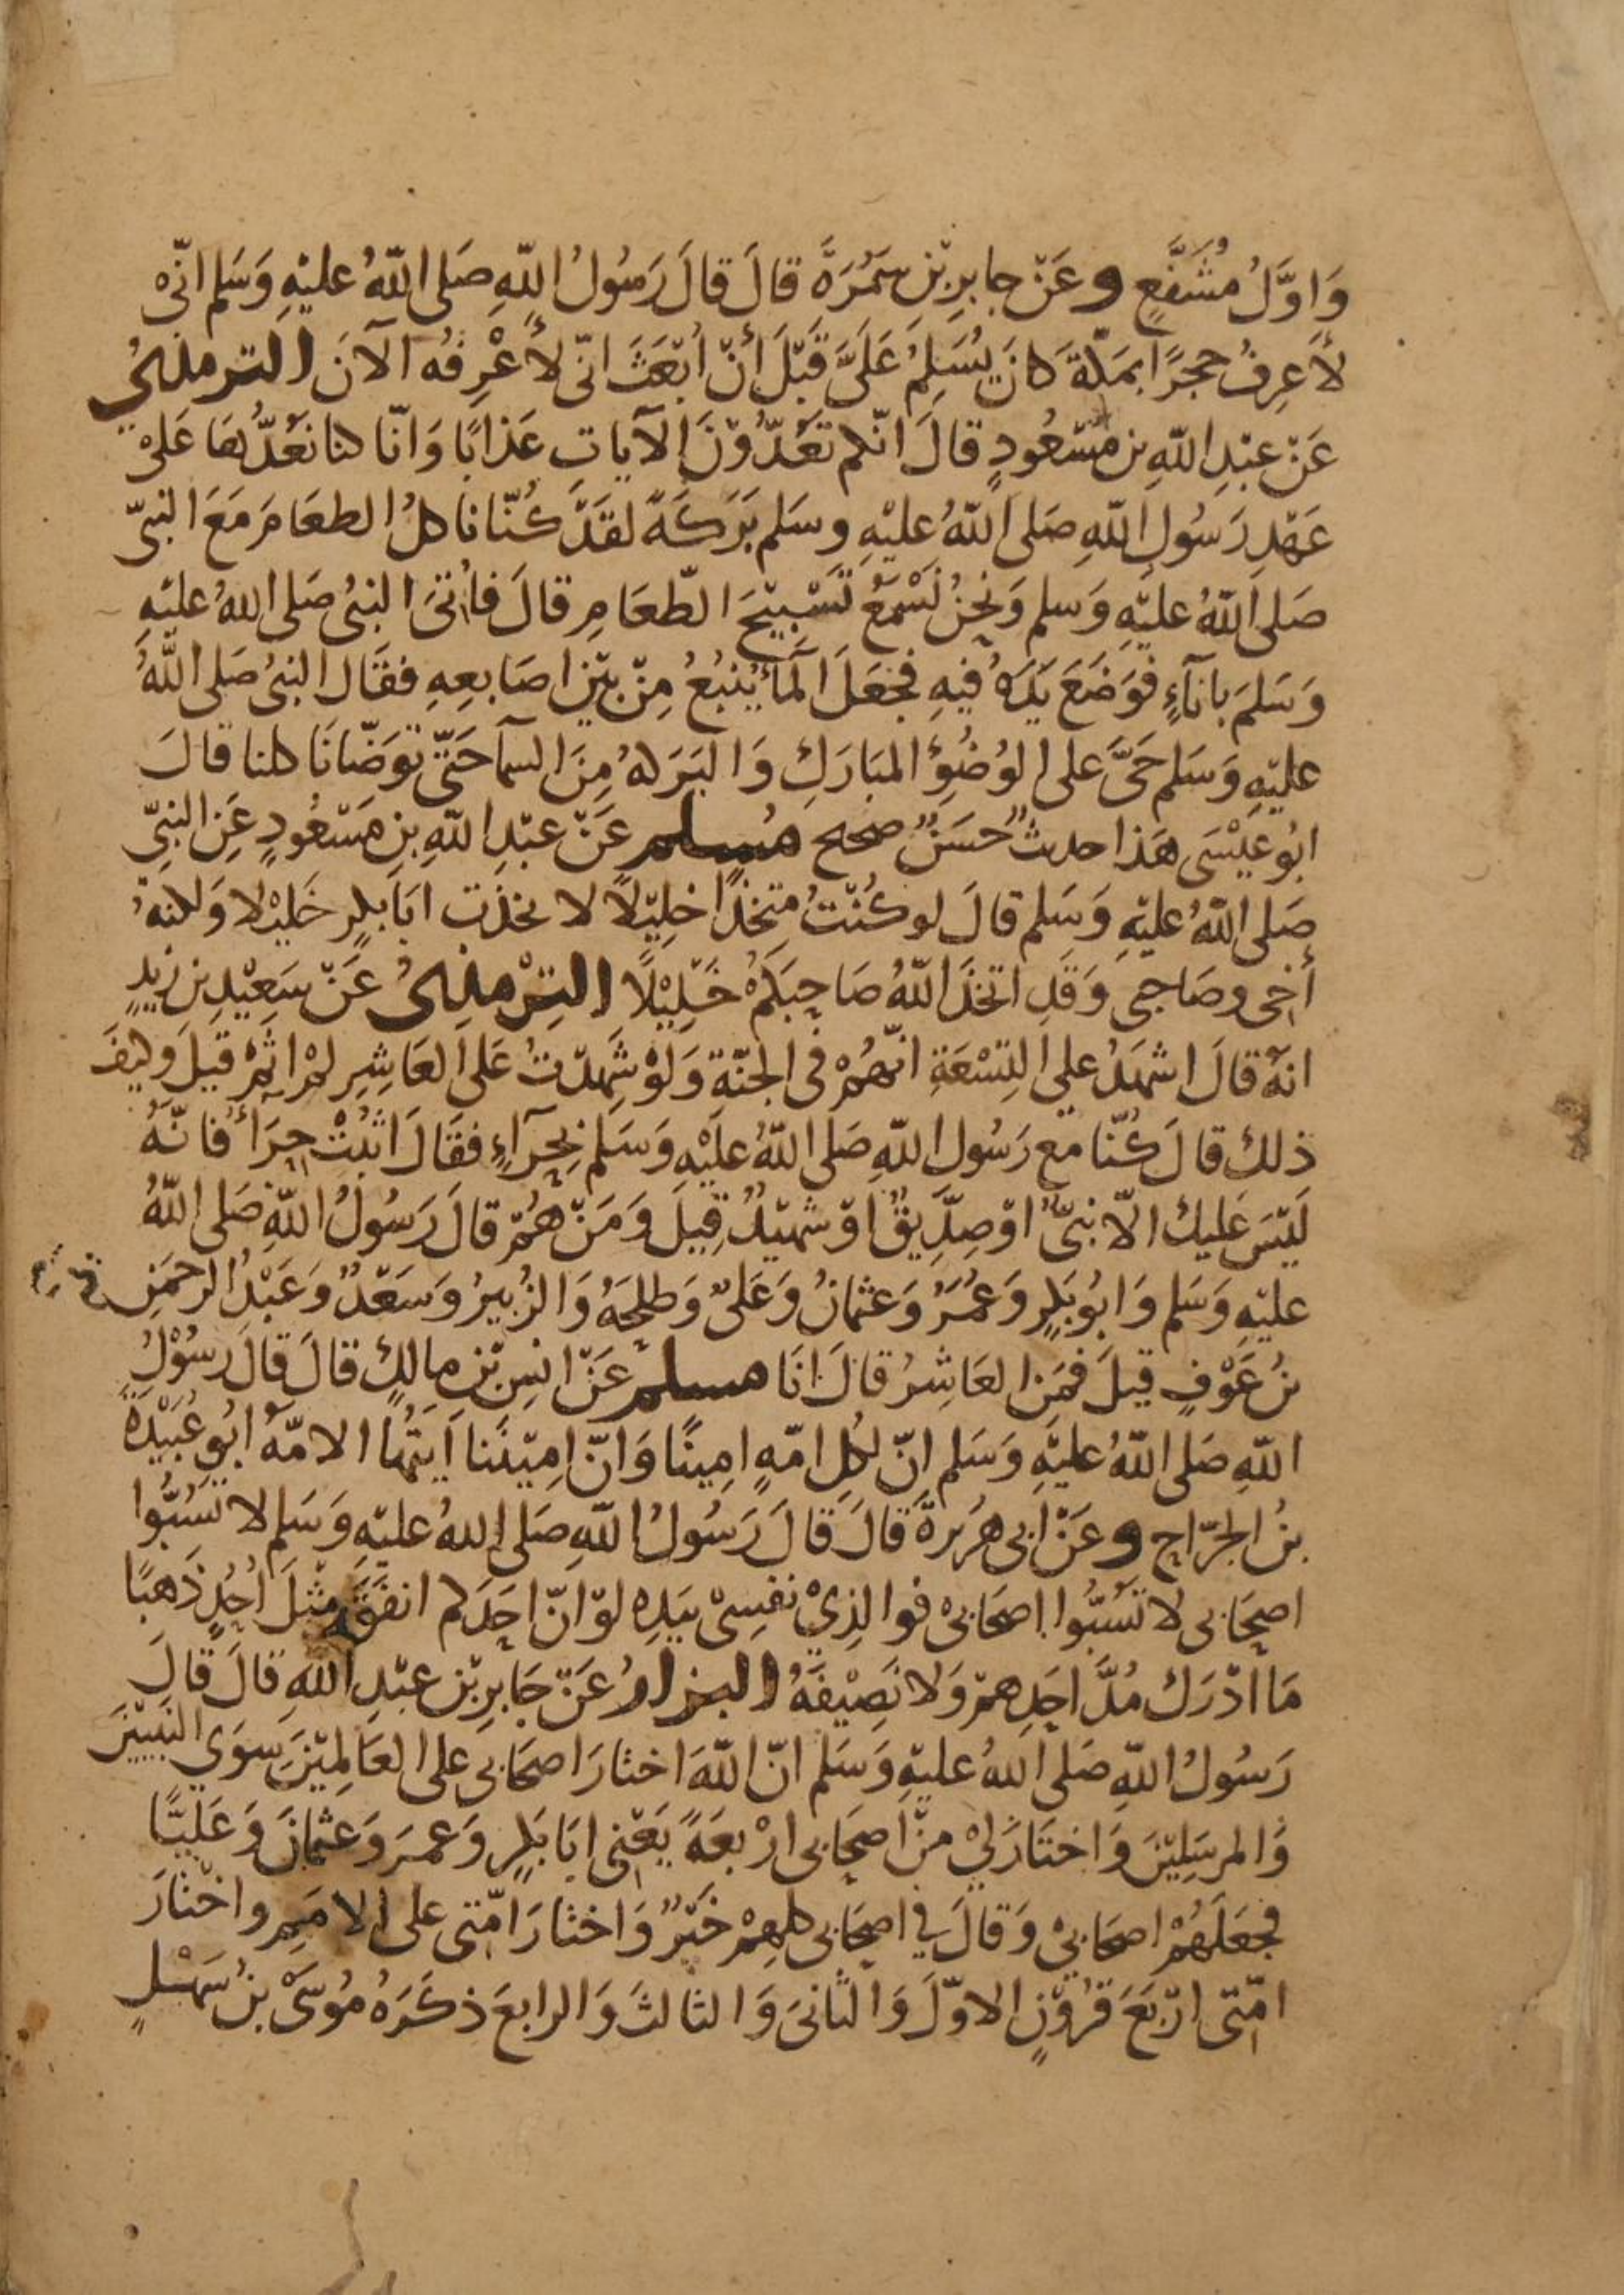 وَاوَّلُ مُشَفَّعٍ وعَنْ جابِرِ بْنِ سَمُرَةَ قالَ قالَ رَسُولُ اللّٰهِ صَلى اللّٰهُ عليْهِ وَسَلم انّى
لأَعرِفُ حجرًا بمَكّة كانَ يُسَلِمُ عَلَىَّ قَبْلَ أنْ ابْعَثَ انّى لأَعْرِفُه الآنَ الترمذيُ
عَنْ عبْدِ اللّٰهِ بن مسْعُودٍ قالَ انّكم تَعُدّوْنَ الآياتِ عَذابًا وَانّا كنا نَعُدُّهَا عَلىْ
عَهْدِ رَسُولِ اللّٰهِ صَلى اللّٰهُ عليْهِ وسَلم بَرَكَةً لقَدْ كُنّا ناكلُ الطعَامَ مَعَ النبيّ
صَلى اللّٰهُ عليْهِ وَسلم وَنحْنُ نَسْمَعُ تَسْبِيْحَ الطّعَامِ قالَ فاُتىَ النبىُ صَلى اللّٰهُ عليْهِ
وَسَلمَ باناءٍ فوَضَعَ يَدَهُ فيهِ فجعَلَ الماءُ يَنْبُعُ مِنْ بيْنِ اصَابعِهِ فقَال النبىُ صَلى اللّٰهُ
عليْهِ وَسَلم حَىَّ على الوُضُؤِ المبَارَكِ وَالبَرَكهُ مِنَ السمآ حَتّى توَضّانَا كلنا قالَ
ابُو عيْسَى هَذا حديثٌ حسَنٌ صحيح مسلم عَنْ عبْدِ اللّٰهِ بنِ مَسْعُودٍ عَنِ النبيِّ
صَلى اللّٰهُ عليْهِ وَسَلم قالَ لو كُنْتُ متخذًا خلِيْلًا لاتخذت ابَابكرٍ خَليْلا وَلكنهُ
أخى وصَاحبى وَقَدِ اتخَذَ اللّٰهُ صَاحِبَكمْ خَلِيْلًا التِرْمذِىُ عَنْ سَعِيْدِ بن زيْدٍ
انهُ قالَ اشهَدُ على التِسْعَةِ انّهُمْ فى الجنّةِ وَلوْ شَهِدْتُ عَلى العَاشِرِ لمْ اثمْ قيلَ وَكيفَ
ذلك قالَ كُنّا مع رَسُول اللّٰهِ صَلى اللّٰهُ عليْهِ وَسَلم بحِرَآءٍ فقَالَ اثبُتْ حِرَأ فانّهُ
ليْسَ عَليك الّا نبىٌّ اوْ صِدِّيقٌ اوْ شهيْدٌ قِيلَ وَمَنْ هُمْ قالَ رَسُولُ اللّٰهِ صَلى اللّٰهُ
عليْهِ وَسَلم وَابُوبَكرٍ وَعُمَرُ وَعثمانُ وَعَلىٌ وَطلحَهُ وَالزُبيرُ وَسَعْدٌ وَعَبْدُ الرحمَنِ
بنُ عَوْفٍ قيلَ فمَن العَاشِرُ قالَ انَا مسلم عَنْ انسِ بْنِ مالِكٍ قالَ قالَ رَسُوْلُ
اللّٰهِ صَلى اللّٰهُ عليْهِ وَسَلم انّ لكُلِ امّهٍ امِينًا وَانّ امِيْنَنا ايتُها الامّهُ ابُو عُبَيْدَةَ
بنُ الجرّاح وعَنْ ابى هُرَيرةَ قالَ قالَ رَسُولُ اللّٰهِ صَلى اللّٰهُ عليْهِ وَسَلم لا تَسُبُّوا
اصحَابى لا تسُبُّوا اصحَابىْ فوالذِىْ نفسِىْ بيَدِهِ لوْ انّ احَدَكم انفَقَ مثلَ اُحُدٍ ذَهبًا
مَا ادْرَك مُدَّ احَدِهمْ وَلا نَصِيْفَهُ البزارُ عَنْ جَابِرِ بْن عبْدِ اللّٰهِ قالَ قالَ
رَسُولُ اللّٰهِ صَلى اللّٰهُ عليْهِ وَسَلم انّ اللّٰهَ اختارَ اصحَابى على العَالمِيْنَ سوَي النبيينَ
وَالمرسَلِيْنَ وَاختَارَ لِيْ منْ اصحَابى ارْبعَةً يَعْنِى ابَابكرٍ وَعمرَ وَعثمانَ وَعَليًّا
فجعَلَهُمْ اصحَابىْ وَقالَ في اصحَابى كلهِمْ خَيْرٌ وَاختارَ امّتى على الامَمِ واختارَ
امّتى ارْبَعَ قرُوْنٍ الاوّلَ وَالثانىَ وَالثالثَ وَالرابعَ ذكَرَهُ مُوسَىْ بنُ سَهْلٍ